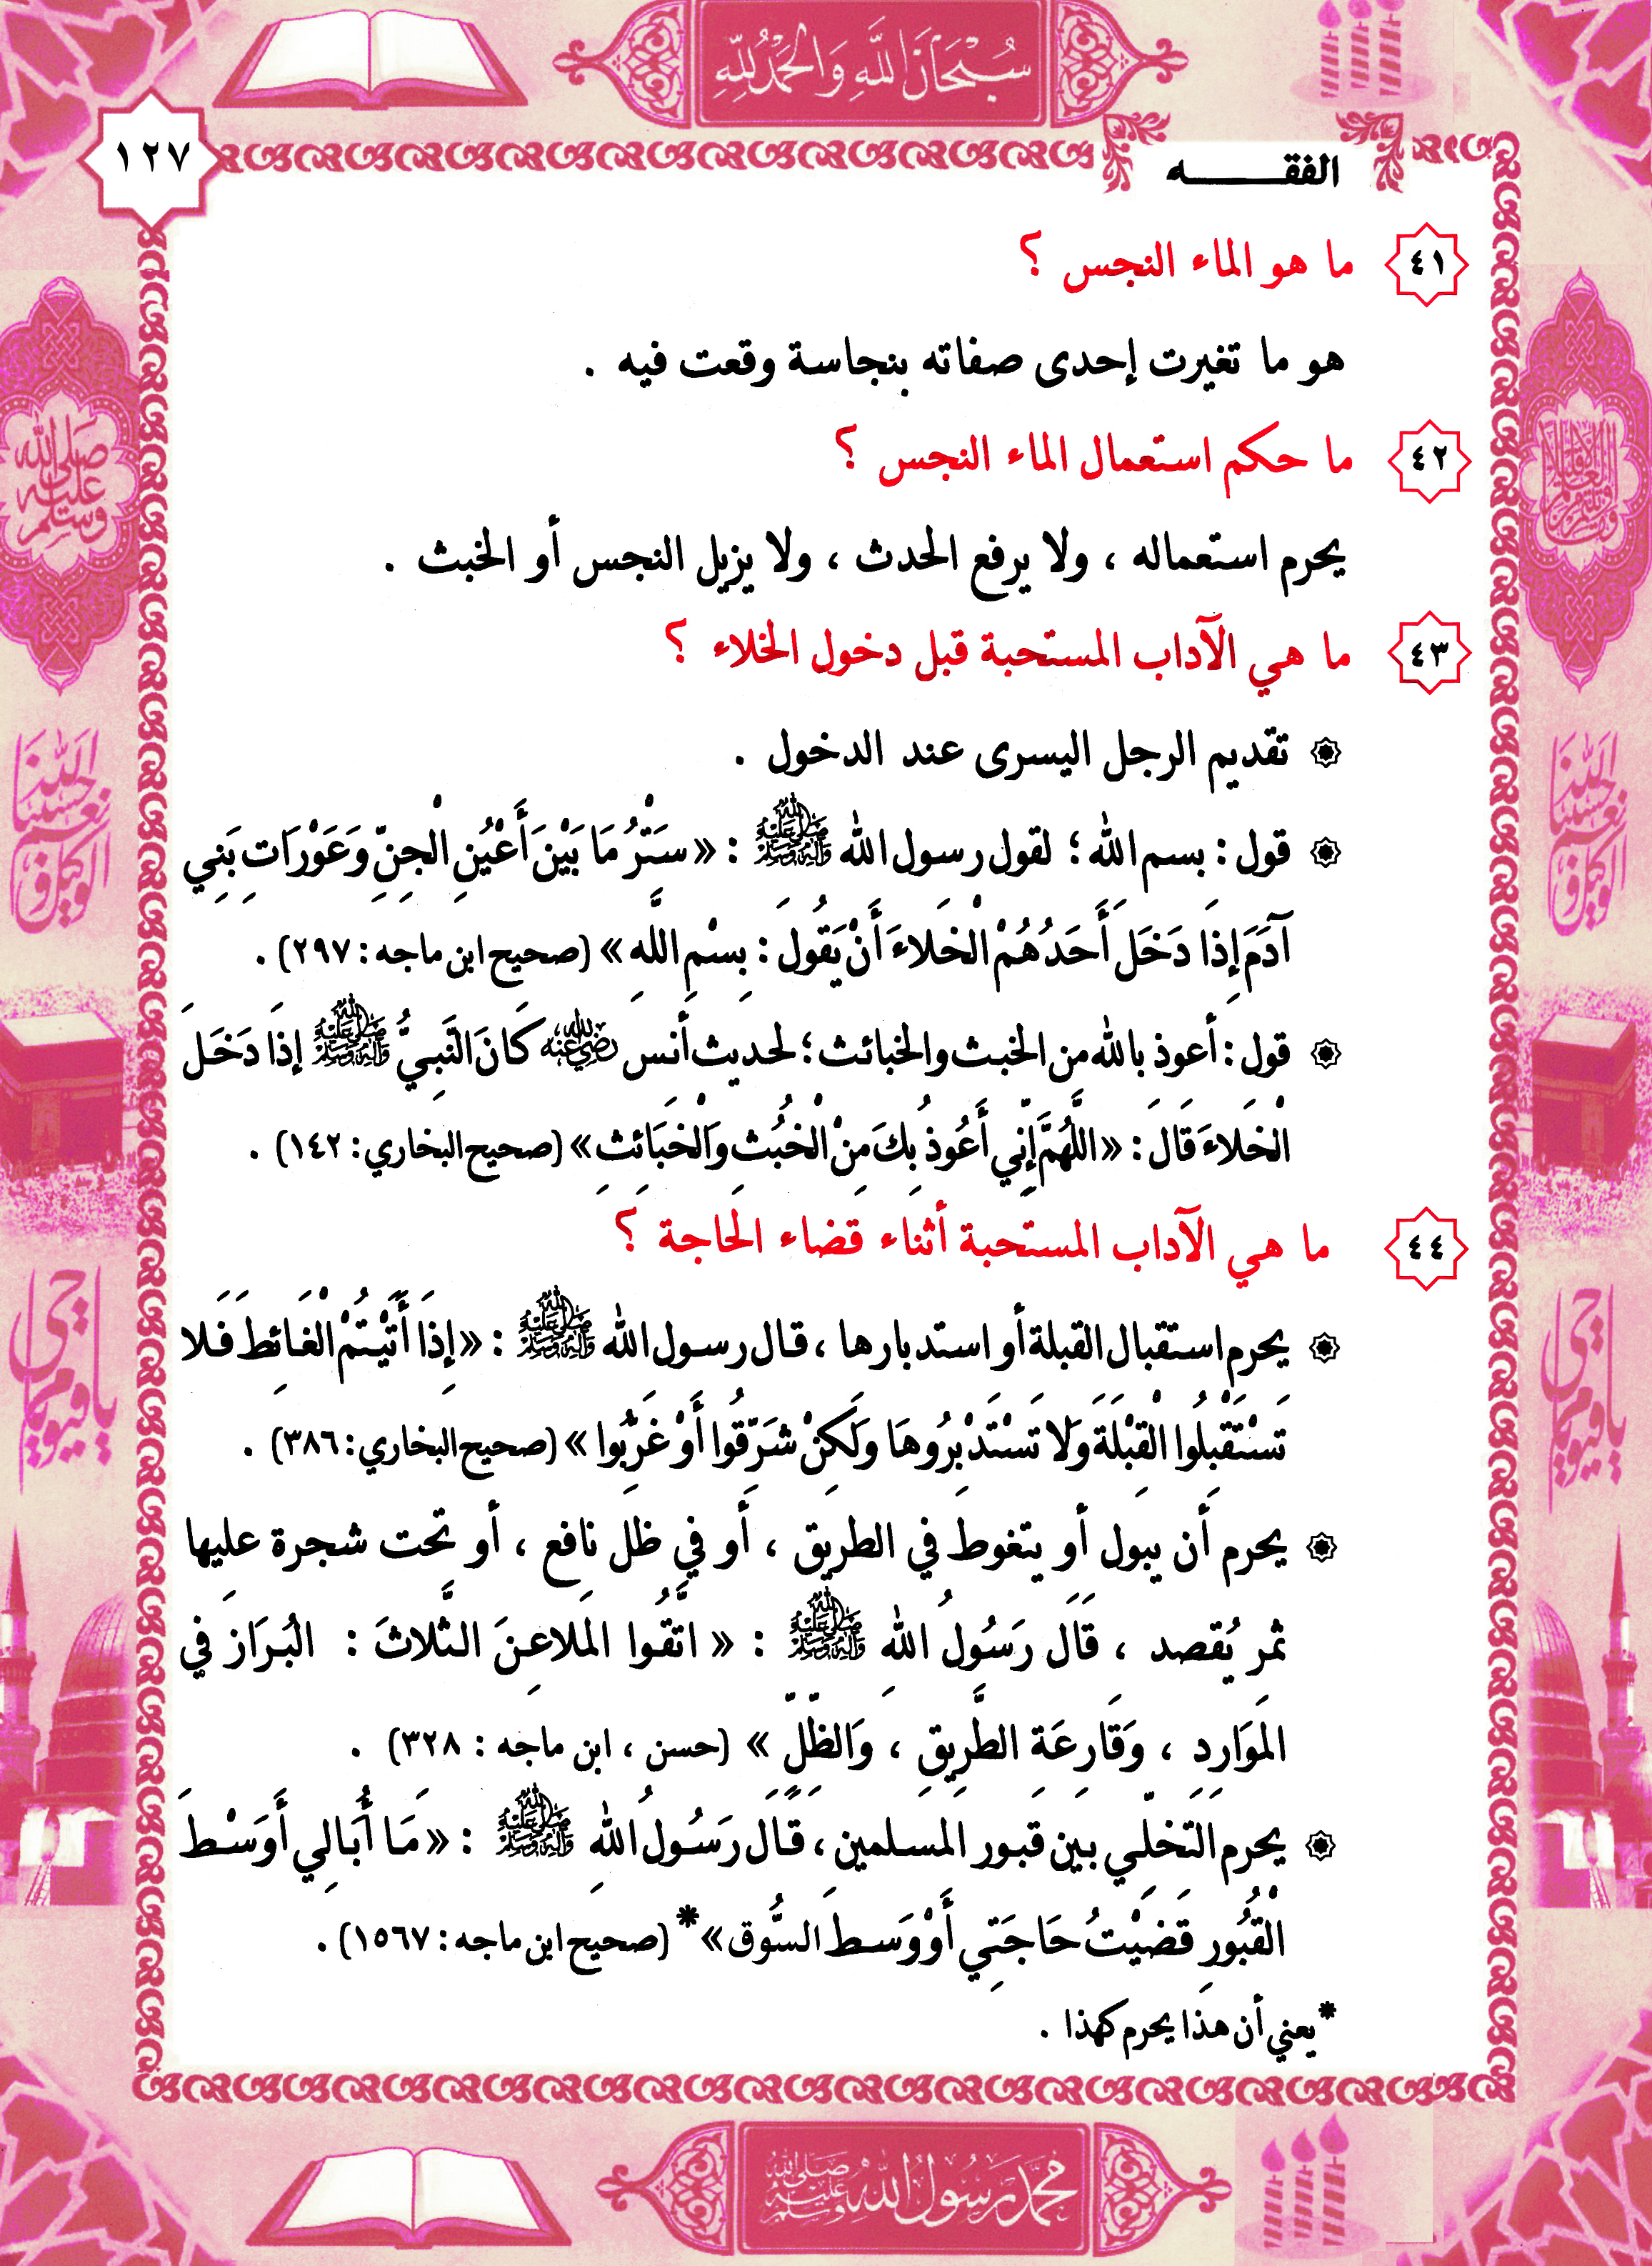 سُبْحَانَ اللَّهِ وَالْحَمْدُ لِلَّهِ
١٢٧
الفقـــــه
٤١ ما هو الماء النجس ؟
هو ما تغيرت إحدى صفاته بنجاسة وقعت فيه .
٤٢ ما حكم استعمال الماء النجس ؟
يحرم استعماله ، ولا يرفع الحدث ، ولا يزيل النجس أو الخبث .
٤٣ ما هي الآداب المستحبة قبل دخول الخلاء ؟
۞ تقديم الرجل اليسرى عند الدخول .
۞ قول : بسم الله ؛ لقول رسول الله ﷺ : « سَتْرُ مَا بَيْنَ أَعْيُنِ الْجِنِّ وَعَوْرَاتِ بَنِي
آدَمَ إِذَا دَخَلَ أَحَدُهُمْ الْخَلاءَ أَنْ يَقُولَ : بِسْمِ اللَّهِ » (صحيح ابن ماجه : ٢٩٧) .
۞ قول : أعوذ بالله من الخبث والخبائث ؛ لحديث أنس رضي الله عنه كَانَ النَّبِيُّ ﷺ إِذَا دَخَلَ
الْخَلاءَ قَالَ : « اللَّهُمَّ إِنِّي أَعُوذُ بِكَ مِنْ الْخُبُثِ وَالْخَبَائِثِ » (صحيح البخاري : ١٤٢) .
٤٤ ما هي الآداب المستحبة أثناء قضاء الحاجة ؟
۞ يحرم استقبال القبلة أو استدبارها ، قال رسول الله ﷺ : « إِذَا أَتَيْتُمْ الغَائِطَ فَلا
تَسْتَقْبِلُوا الْقِبْلَةَ وَلا تَسْتَدْبِرُوهَا وَلَكِنْ شَرِّقُوا أَوْ غَرِّبُوا » (صحيح البخاري : ٣٨٦) .
۞ يحرم أن يبول أو يتغوط في الطريق ، أو في ظل نافع ، أو تحت شجرة عليها
ثمر يُقصد ، قَالَ رَسُولُ اللهِ ﷺ : « اتَّقُوا المَلاعِنَ الثَّلاثَ : البُرَازَ فِي
المَوَارِدِ ، وَقَارِعَةِ الطَّرِيقِ ، وَالظِّلِّ » (حسن ، ابن ماجه : ٣٢٨) .
۞ يحرم التخلّي بين قبور المسلمين ، قَالَ رَسُولُ اللهِ ﷺ : « مَا أُبَالِي أَوَسْطَ
الْقُبُورِ قَضَيْتُ حَاجَتِي أَوْ وَسطَ السُّوقِ »* (صحيح ابن ماجه : ١٥٦٧) .
* يعني أن هذا يحرم كهذا .
صلى الله عليه وسلم
حسبنا الله ونعم الوكيل
حسبنا الله ونعم الوكيل
يا حي يا قيوم
يا حي يا قيوم
محمد رسول الله صلى الله عليه وسلم